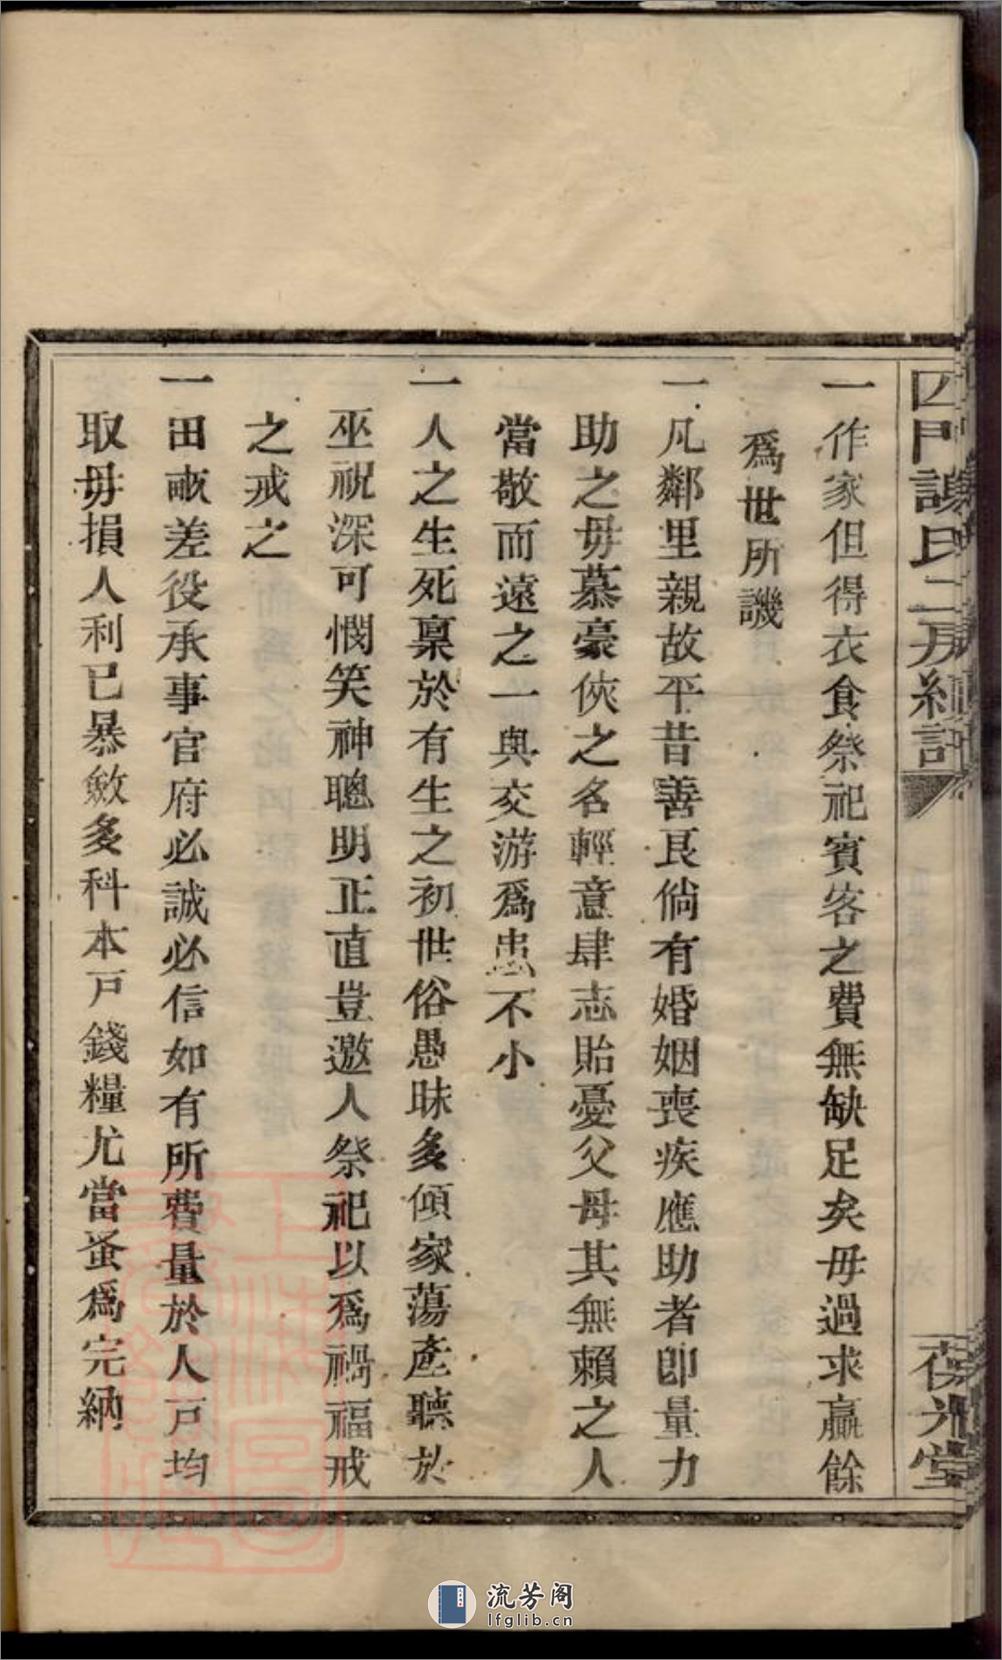 四門謝氏二房續譜
葆光堂
一作家但得衣食祭祀賓客之費無缺足矣毋過求贏餘
爲世所譏
一凡鄰里親故平昔善良倘有婚姻喪疾應助者卽量力
助之毋慕豪俠之名輕意肆志貽憂父母其無賴之人
當敬而遠之一與交游爲患不小
一人之生死稟於有生之初世俗愚昧多傾家蕩產聽於
巫祝深可憫笑神聰明正直豈邀人祭祀以爲禍福戒
之戒之
一田畝差役承事官府必誠必信如有所費量於人戸均
取毋損人利已暴斂多科本戸錢糧尤當蚤爲完納
上海圖書館藏
流芳阁
lfglib.cn